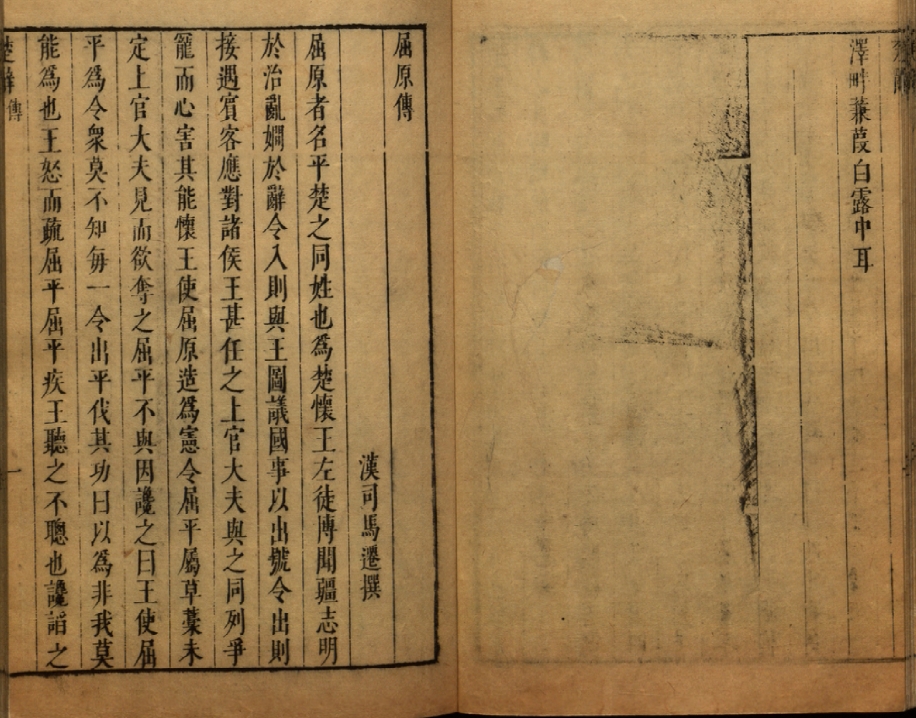 澤畔蒹葭白露中耳
屈原傳
漢司馬遷撰
屈原者名平楚之同姓也為楚懷王左徒博聞疆志明
於治亂嫺於辭令入則與王圖議國事以出號令出則
接遇賓客應對諸侯王甚任之上官大夫與之同列爭
寵而心害其能懷王使屈原造為憲令屈平屬草藁未
定上官大夫見而欲奪之屈平不與因讒之曰王使屈
平為令衆莫不知每一令出平伐其功曰以為非我莫
能為也王怒而疏屈平屈平疾王聽之不聰也讒謟之
楚辭 傳 一